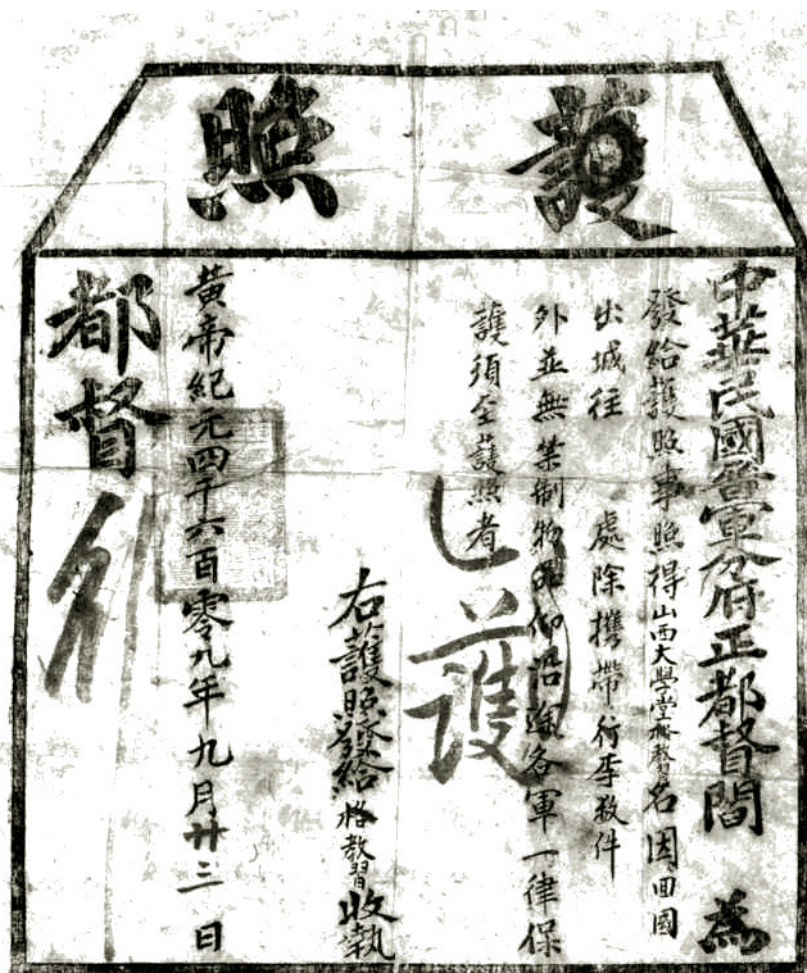 護照
中華民國晉軍分府正都督閻 為
發給護照事照得山西大學堂格教習名因回國
出城往 處除攜帶行李數件
外並無禁制物品仰沿途各軍一律保
護須至護照者
護
右護照發給格教習收執
黃帝紀元四千六百零九年九月廿三日
都督